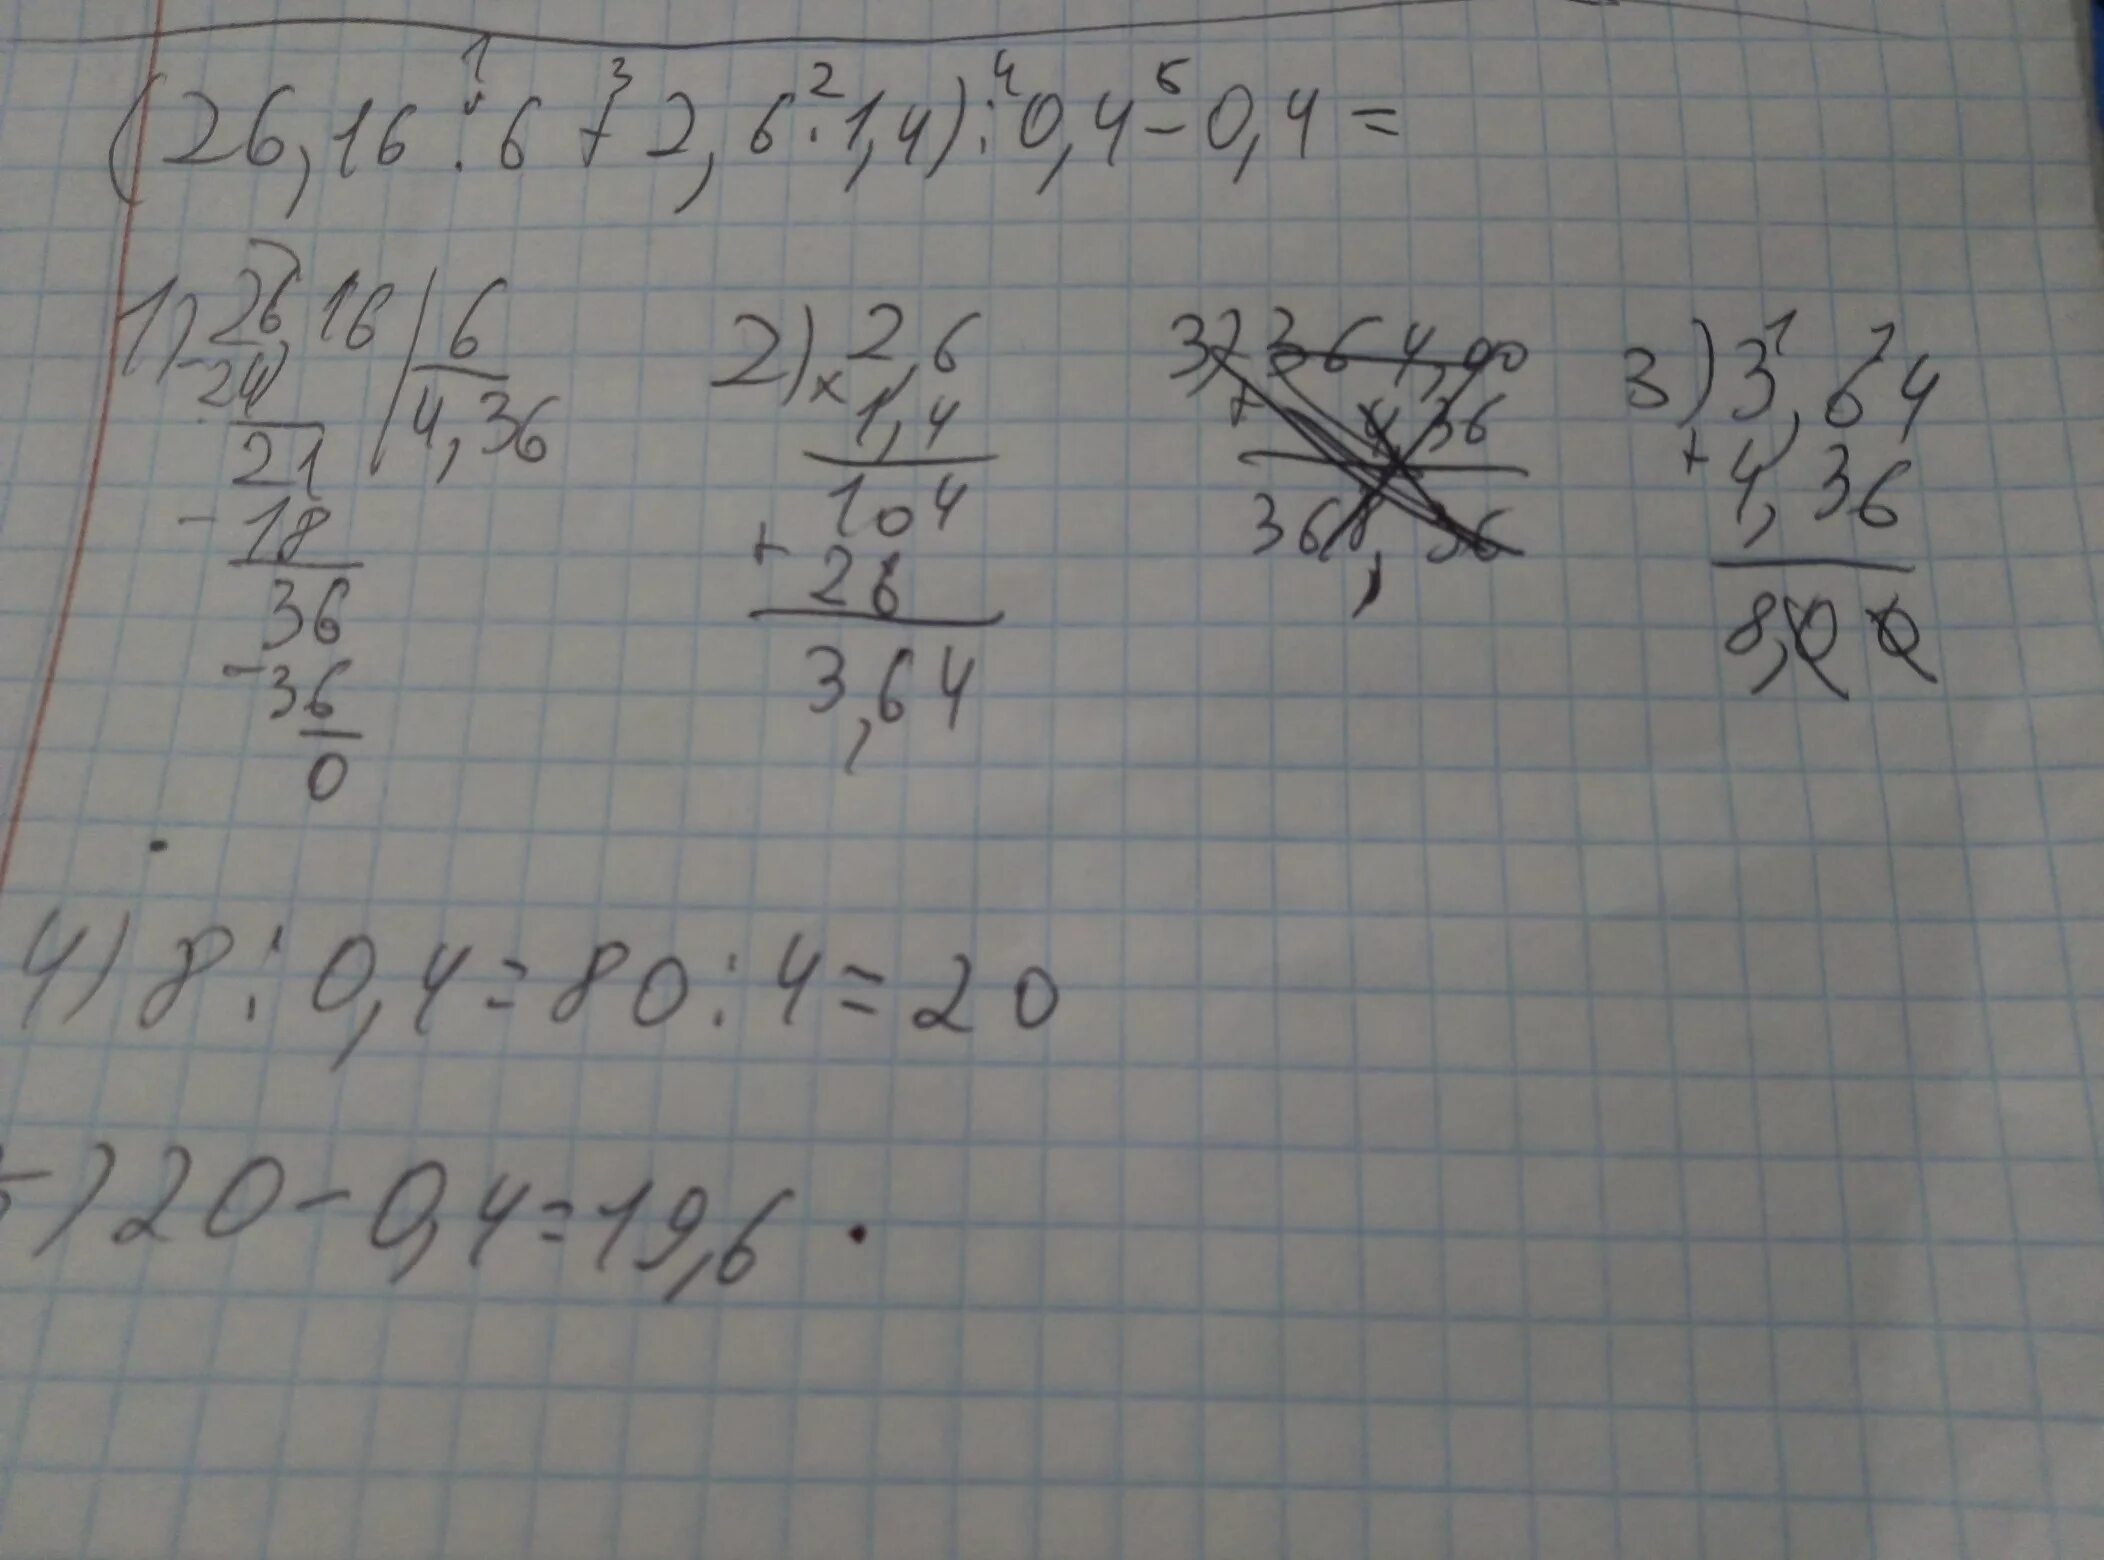 1 3 2 4 5
(26,16 : 6 + 2,6 · 1,4) : 0,4 - 0,4 =
1) 26,16 | 6
- 24 | 4,36
21
- 18
36
- 36
0
2) 2,6
× 1,4
104
+ 26
3,64
3) 364,00
+ 4,36
368,36
3) 3,64
+ 4,36
8,00
4) 8 : 0,4 = 80 : 4 = 20
5) 20 - 0,4 = 19,6 .